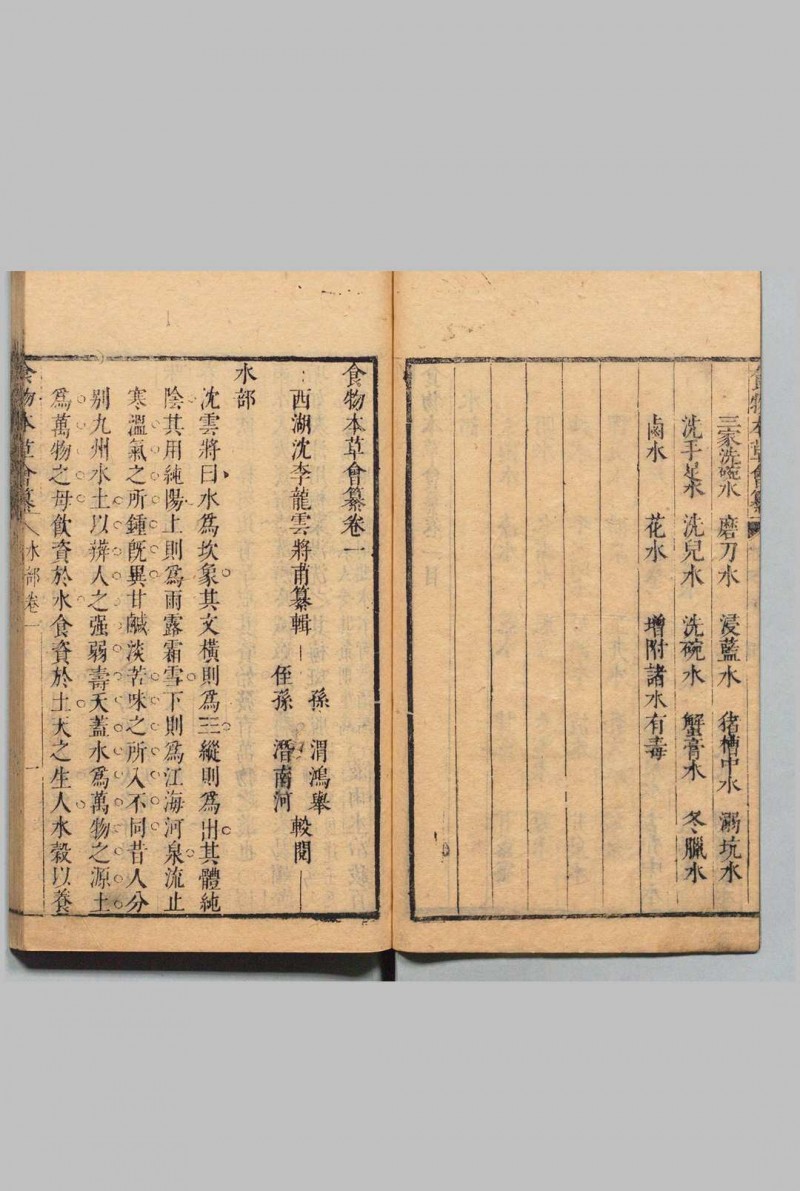 食物本草會纂
三家洗碗水 磨刀水 浸藍水 猪槽中水 溺坑水
洗手足水 洗兒水 洗碗水 蟹膏水 冬臘水
鹵水 花水 增附諸水有毒
食物本草會纂卷一
西湖沈李龍雲將甫纂輯
孫 渭鴻舉
侄孫 濳南河 較閱
水部
沈雲將曰水爲坎象其文橫則爲三縱則爲出其體純
陰其用純陽上則爲雨露霜雪下則爲江海河泉流止
寒溫氣之所鍾旣異甘鹹淡苦味之所入不同昔人分
别九州水土以辨人之强弱壽夭蓋水爲萬物之源土
爲萬物之母飲資於水食資於土天之生人水穀以養
食物本草會纂 水部卷一 一